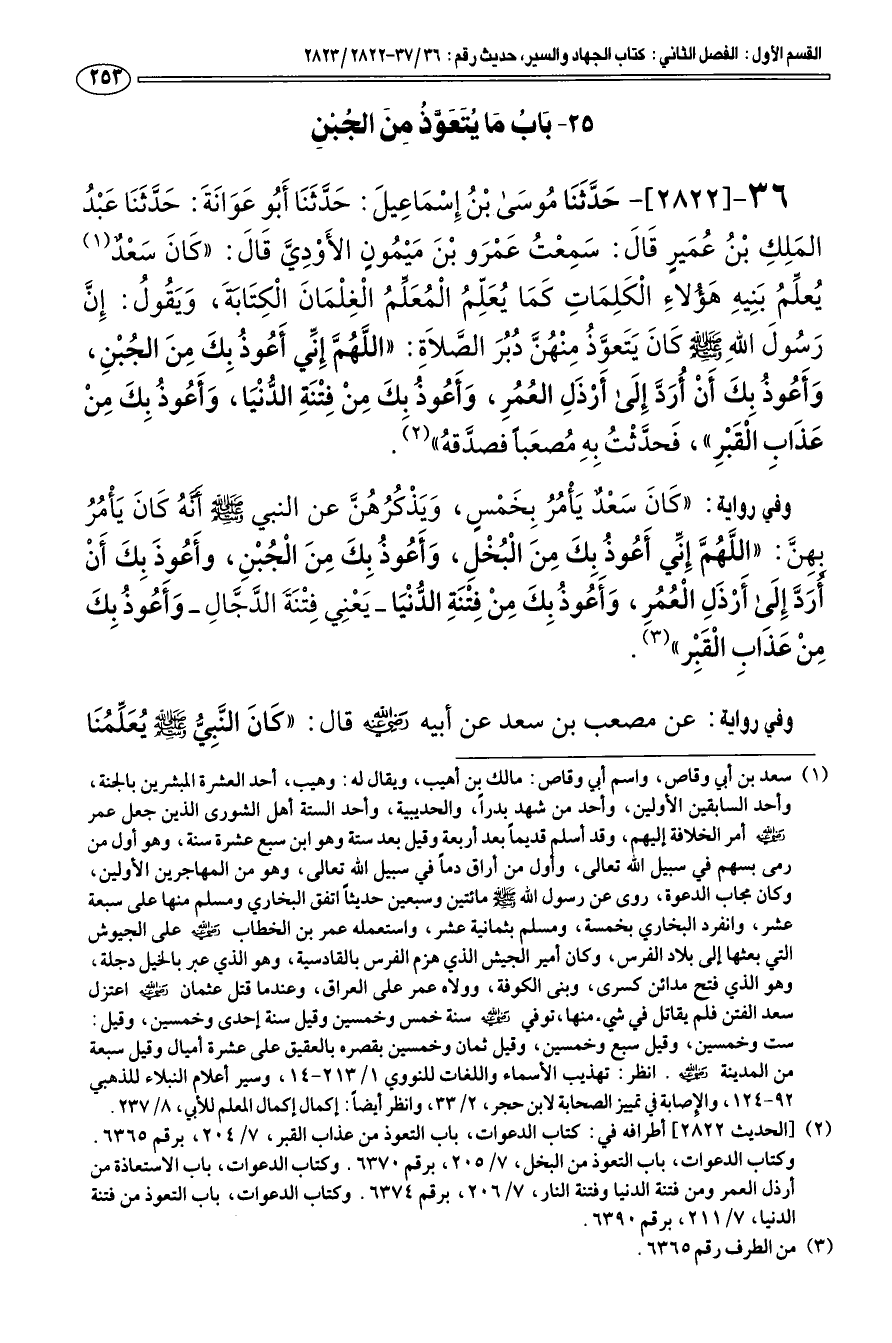 القسم الأول: الفصل الثاني: كتاب الجهاد والسير، حديث رقم: ٣٦/٣٧-٢٨٢٢/٢٨٢٣
٢٥٣
٢٥- بَابُ مَا يُتَعَوَّذُ مِنَ الجُبْنِ
٣٦-[٢٨٢٢]- حَدَّثَنَا مُوسَىٰ بْنُ إِسْمَاعِيلَ: حَدَّثَنَا أَبُو عَوَانَةَ: حَدَّثَنَا عَبْدُ
المَلِكِ بْنُ عُمَيرٍ قَالَ: سَمِعْتُ عَمْرَو بْنَ مَيْمُونٍ الأَوْدِيَّ قَالَ: «كَانَ سَعْدٌ(١)
يُعلِّمُ بَنِيهِ هَؤُلاءِ الْكَلِمَاتِ كَمَا يُعَلِّمُ الْمُعَلِّمُ الْغِلْمَانَ الْكِتَابَةَ، وَيَقُولُ: إِنَّ
رَسُولَ اللهِ ﷺ كَانَ يَتَعوَّذُ مِنْهُنَّ دُبُرَ الصَّلاَةِ: «اللَّهُمَّ إِنِّي أَعُوذُ بِكَ مِنَ الجُبْنِ،
وَأَعُوذُ بِكَ أَنْ أُرَدَّ إِلَىٰ أَرْذَلِ العُمُرِ، وَأَعُوذُ بِكَ مِنْ فِتْنَةِ الدُّنْيَا، وَأَعُوذُ بِكَ مِنْ
عَذَابِ الْقَبْرِ»، فَحدَّثْتُ بِهِ مُصعَباً فصدَّقهُ»(٢).
وفي رواية: «كَانَ سَعْدٌ يَأْمُرُ بِخَمْسٍ، وَيَذْكُرُهُنَّ عن النبي ﷺ أَنَّهُ كَانَ يَأْمُرُ
بِهِنَّ: «اللَّهُمَّ إِنِّي أَعُوذُ بِكَ مِنَ الْبُخْلِ، وَأَعُوذُ بِكَ مِنَ الْجُبْنِ، وأَعُوذُ بِكَ أَنْ
أُرَدَّ إِلَىٰ أَرْذَلِ الْعُمُرِ، وَأَعُوذُ بِكَ مِنْ فِتْنَةِ الدُّنْيَا ـ يَعْنِي فِتْنَةَ الدَّجَّالِ ـ وَأَعُوذُ بِكَ
مِنْ عَذَابِ الْقَبْرِ»(٣).
وفي رواية: عن مصعب بن سعد عن أبيه رضي الله عنه قال: «كَانَ النَّبِيُّ ﷺ يُعَلِّمُنَا
(١) سعد بن أبي وقاص، واسم أبي وقاص: مالك بن أهيب، ويقال له: وهيب، أحد العشرة المبشرين بالجنة،
وأحد السابقين الأولين، وأحد من شهد بدراً، والحديبية، وأحد الستة أهل الشورى الذين جعل عمر
رضي الله عنه أمر الخلافة إليهم، وقد أسلم قديماً بعد أربعة وقيل بعد ستة وهو ابن سبع عشرة سنة، وهو أول من
رمى بسهم في سبيل الله تعالى، وأول من أراق دماً في سبيل الله تعالى، وهو من المهاجرين الأولين،
وكان مجاب الدعوة، روى عن رسول الله ﷺ مائتين وسبعين حديثاً اتفق البخاري ومسلم منها على سبعة
عشر، وانفرد البخاري بخمسة، ومسلم بثمانية عشر، واستعمله عمر بن الخطاب رضي الله عنه على الجيوش
التي بعثها إلى بلاد الفرس، وكان أمير الجيش الذي هزم الفرس بالقادسية، وهو الذي عبر بالخيل دجلة،
وهو الذي فتح مدائن كسرى، وبنى الكوفة، وولاه عمر على العراق، وعندما قتل عثمان رضي الله عنه اعتزل
سعد الفتن فلم يقاتل في شيء منها، توفي رضي الله عنه سنة خمس وخمسين وقيل سنة إحدى وخمسين، وقيل:
ست وخمسين، وقيل سبع وخمسين، وقيل ثمان وخمسين بقصره بالعقيق على عشرة أميال وقيل سبعة
من المدينة رضي الله عنه. انظر: تهذيب الأسماء واللغات للنووي ١/ ٢١٣-١٤، وسير أعلام النبلاء للذهبي
٩٢-١٢٤، والإصابة في تمييز الصحابة لابن حجر، ٢/ ٣٣، وانظر أيضاً: إكمال إكمال المعلم للأبي، ٨/ ٢٣٧.
(٢) [الحديث ٢٨٢٢] أطرافه في: كتاب الدعوات، باب التعوذ من عذاب القبر، ٧/ ٢٠٤، برقم ٦٣٦٥.
وكتاب الدعوات، باب التعوذ من البخل، ٧/ ٢٠٥، برقم ٦٣٧٠. وكتاب الدعوات، باب الاستعاذة من
أرذل العمر ومن فتنة الدنيا وفتنة النار، ٧/ ٢٠٦، برقم ٦٣٧٤. وكتاب الدعوات، باب التعوذ من فتنة
الدنيا، ٧/ ٢١١، برقم ٦٣٩٠.
(٣) من الطرف رقم ٦٣٦٥.